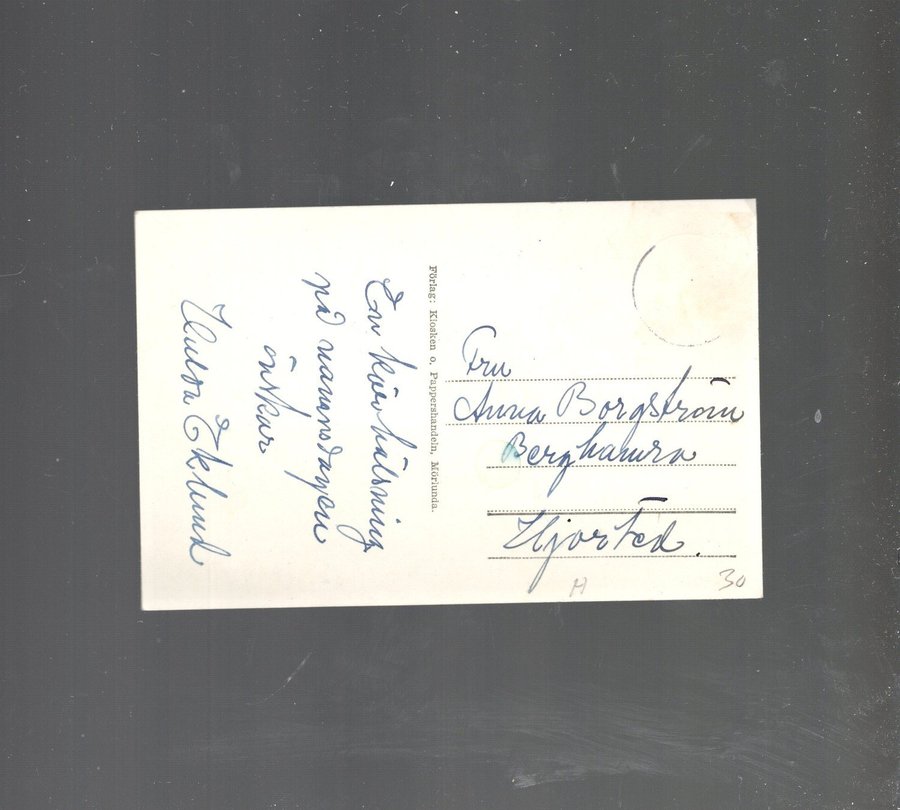 En kär hälsning
på namnsdagen
önskar
Hulda Eklund
Förlag: Kiosken o. Pappershandeln, Mörlunda.
Fru
Anna Borgström
Berghamra
Hjorted.
H
30